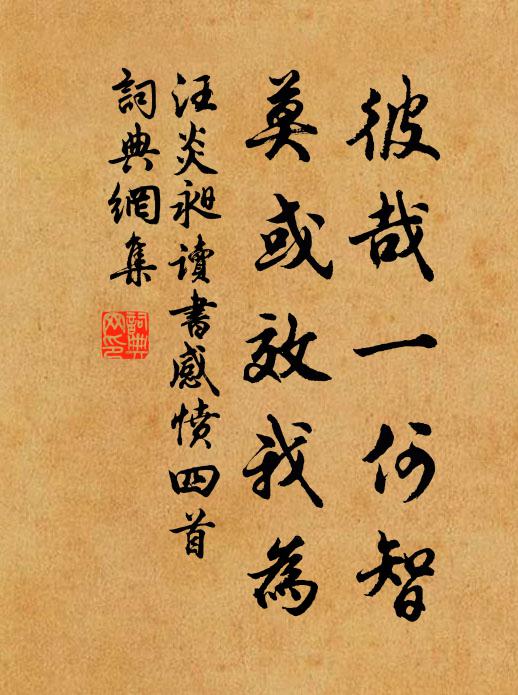 彼哉一何智
莫或效我為
汪炎昶讀書感憤四首
詞典網集
詞典网印